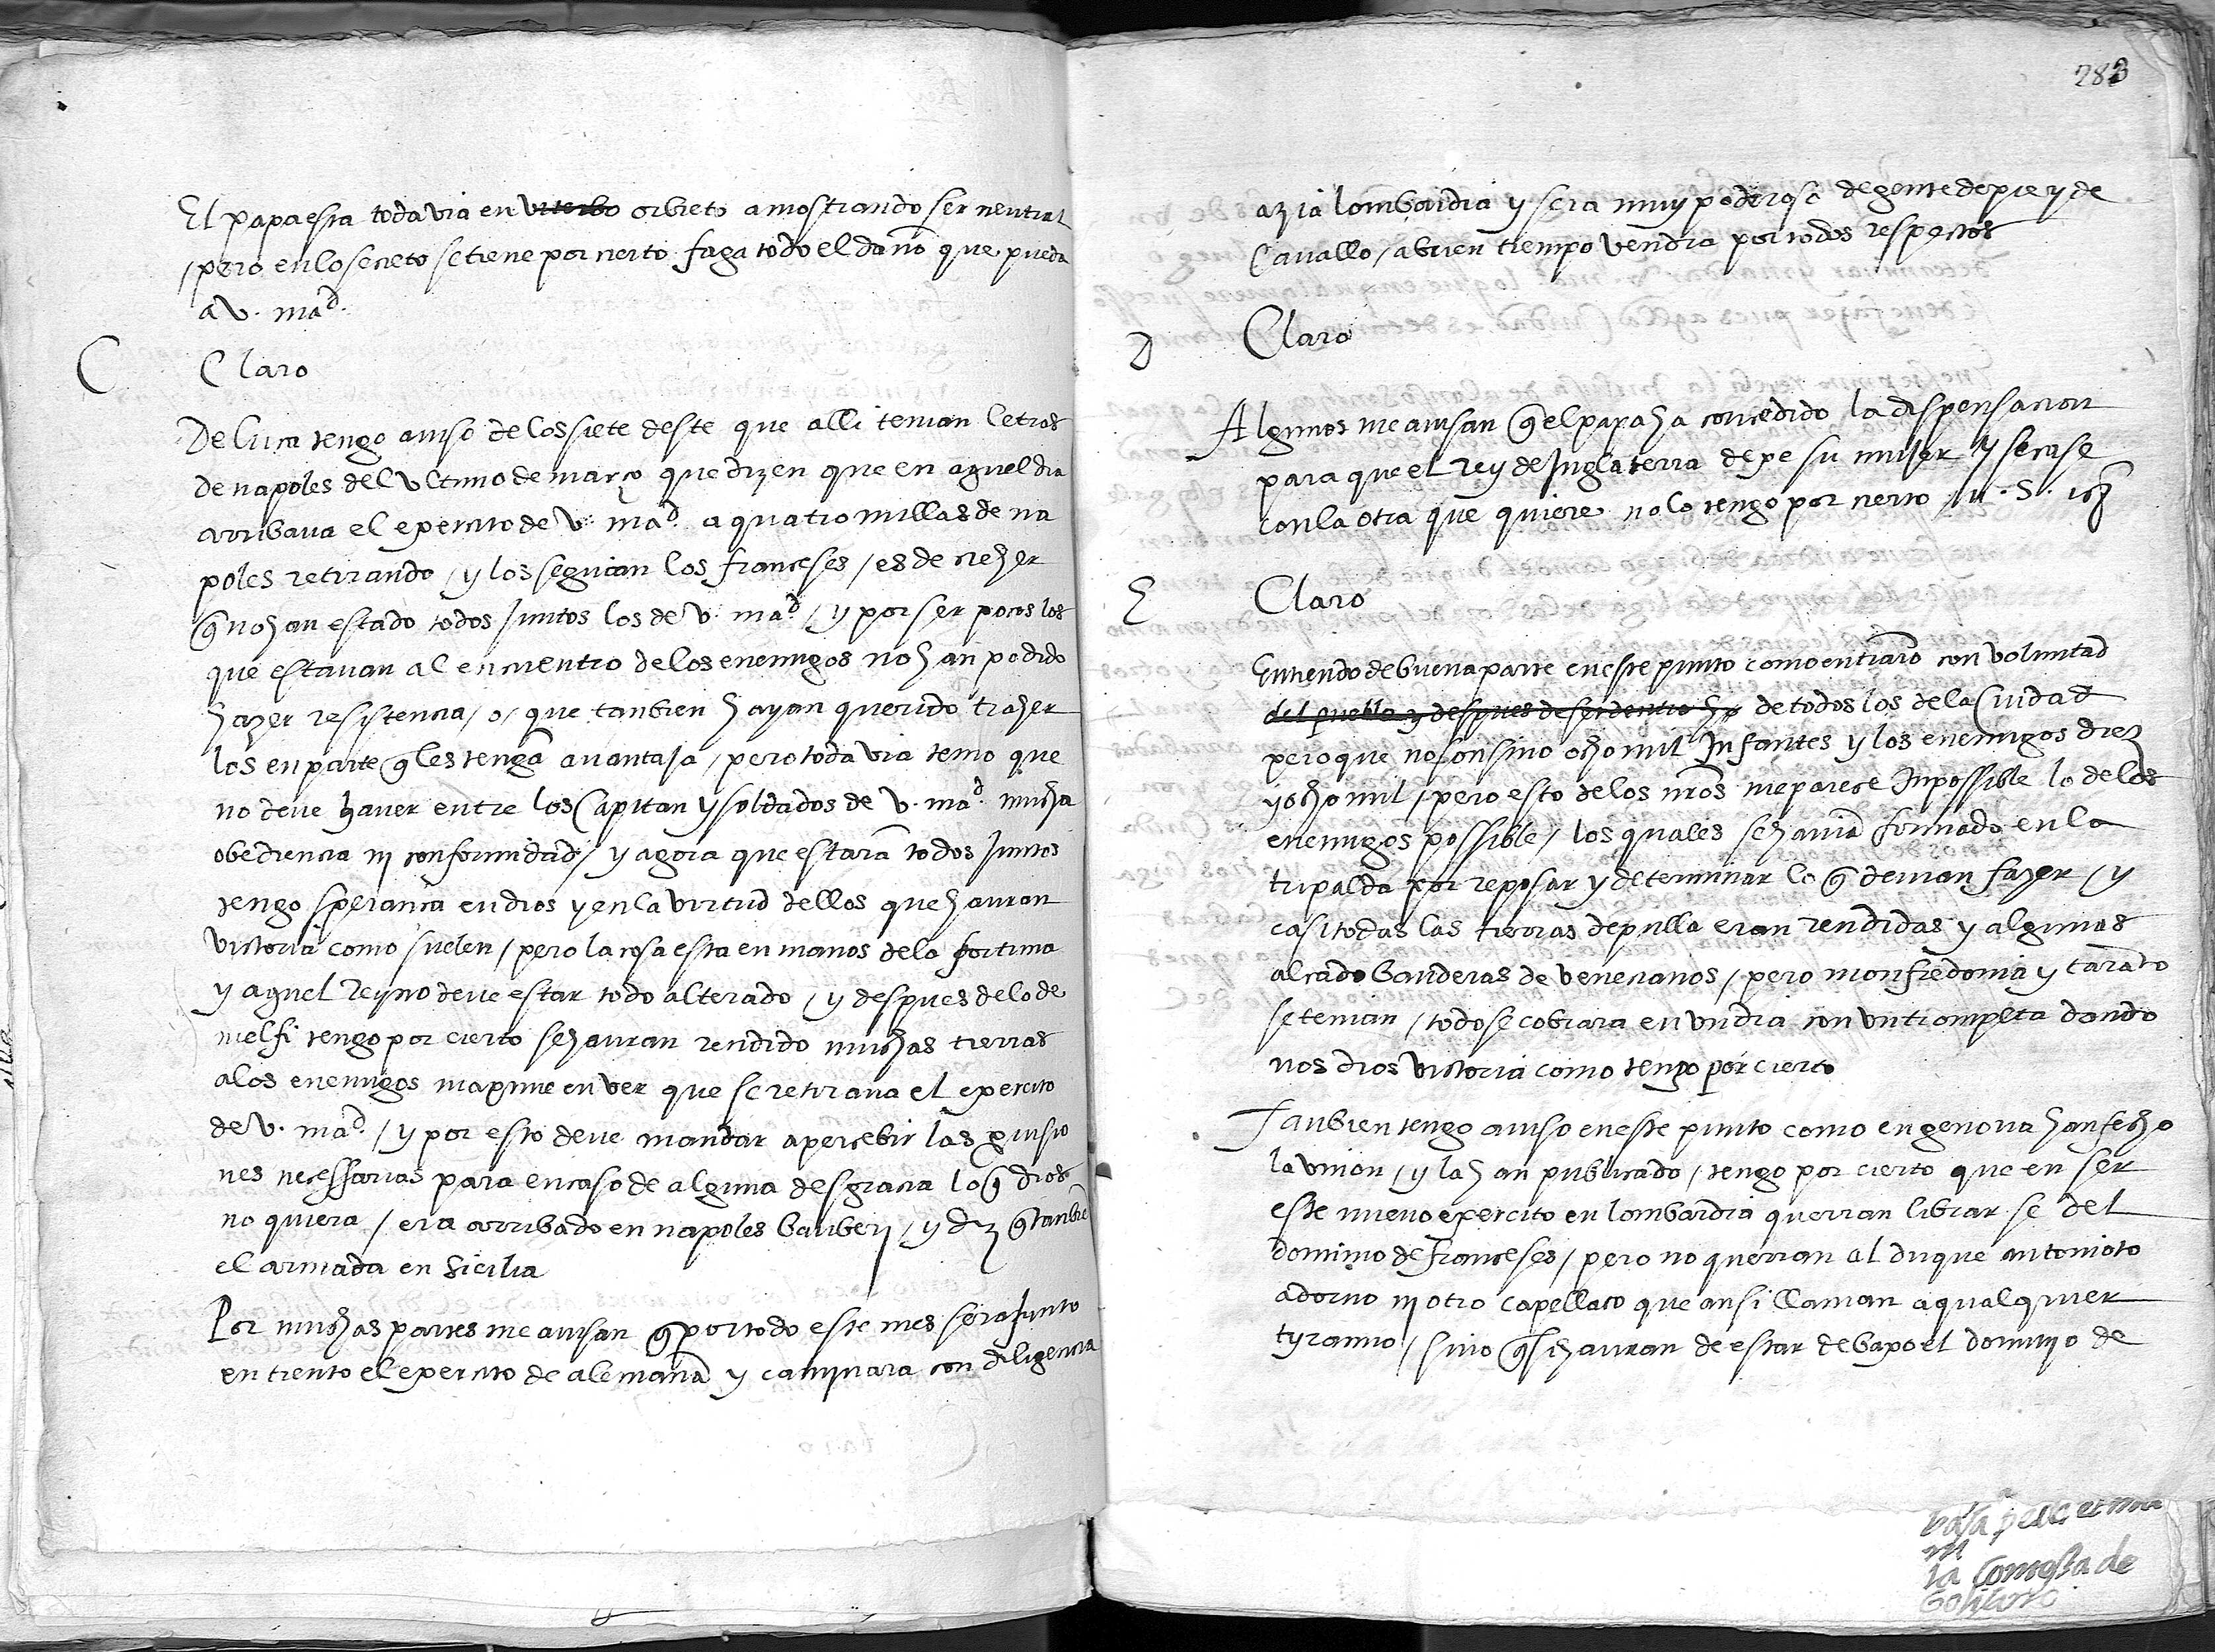 El papa esta toda via en viterbo orbieto amostrando ser neutral
/ pero en lo secreto se tiene por cierto faga todo el daño que pueda
a v. mad.
C Claro
De luca tengo auiso de los siete deste que alli tenian letras
de napoles del vltimo de março que dizen que en aquel dia
arribaua el exercito de v. mad. a quatro millas de na
poles retirando / y los seguian los franceses / es de creher
q̃ no han estado todos Juntos los de v. mad. / y por ser pocos los
que estauan al encuentro de los enemigos no han podido
hazer resistencia / o / que tanbien hayan querido traher
los en parte q̃ les tengã auantaja / pero toda via temo que
no deue hauer entre los Capitan y soldados de v. mad. mucha
obediencia nj conformidad / y agora que estarã todos Juntos
tengo sperança en dios y en la virtud dellos que hauran
victoria como suelen / pero la cosa esta en manos de la fortuna
y aquel Reyno deue estar todo alterado / y despues de lo de
melfi tengo por cierto se hauran rendido muchas tierras
a los enemigos maxime en ver que se retiraua el exercito
de v. mad. / y por esto deue mandar apercebir las prouisio
nes necessarias para en caso de alguna desgracia lo q̃ dios
no quiera / era arribado en napoles Barberj / y diz q̃ tanbiẽ
el armada en Sicilia
Por muchas partes me auisan q̃ por todo este mes sera Junto
en trento el exercito de alemaña y caminara con diligencia
283
azia lombardia y sera muy poderoso de gente de pie y de
Cauallo / a buen tiempo vendra por todos respectos
D Claro
Algunos me auisan q̃ el papa ha concedido la dispensacion
para que el Rey de Inglaterra dexe su muJer y se case
con la otra que quiere no lo tengo por cierto
E Claro
Entiendo de buena parte en este punto como entrarõ con voluntad
del pueblo y despues de ser dentro de todos los de la Ciudad
pero que no son sino ocho mil Infantes y los enemigos diez
y ocho mil / pero esto de los nr̃os me parece Inpossible lo de los
enemigos possible / los quales se hauiã firmado en la
tripalda por reposar y determinar lo q̃ deuian fazer / y
casi todas las tierras de pulla eran rendidas y algunas
alçado banderas de venecianos / pero monfredonia y tarãto
se tenian / todo se cobrara en vn dia con vn trompeta dando
nos dios victoria como tengo por cierto
Tanbien tengo auiso en este punto como en genoua han fecho
la vnion / y la han publicado / tengo por cierto que en ser
este nueuo exercito en lombardia querran librar se del
dominio de franceses / pero no querran al duque antonioto
adorno nj otro capellaço que ansi llaman a qualquier
tyranno / sino q̃ si hauran de estar debaxo el dominjo de